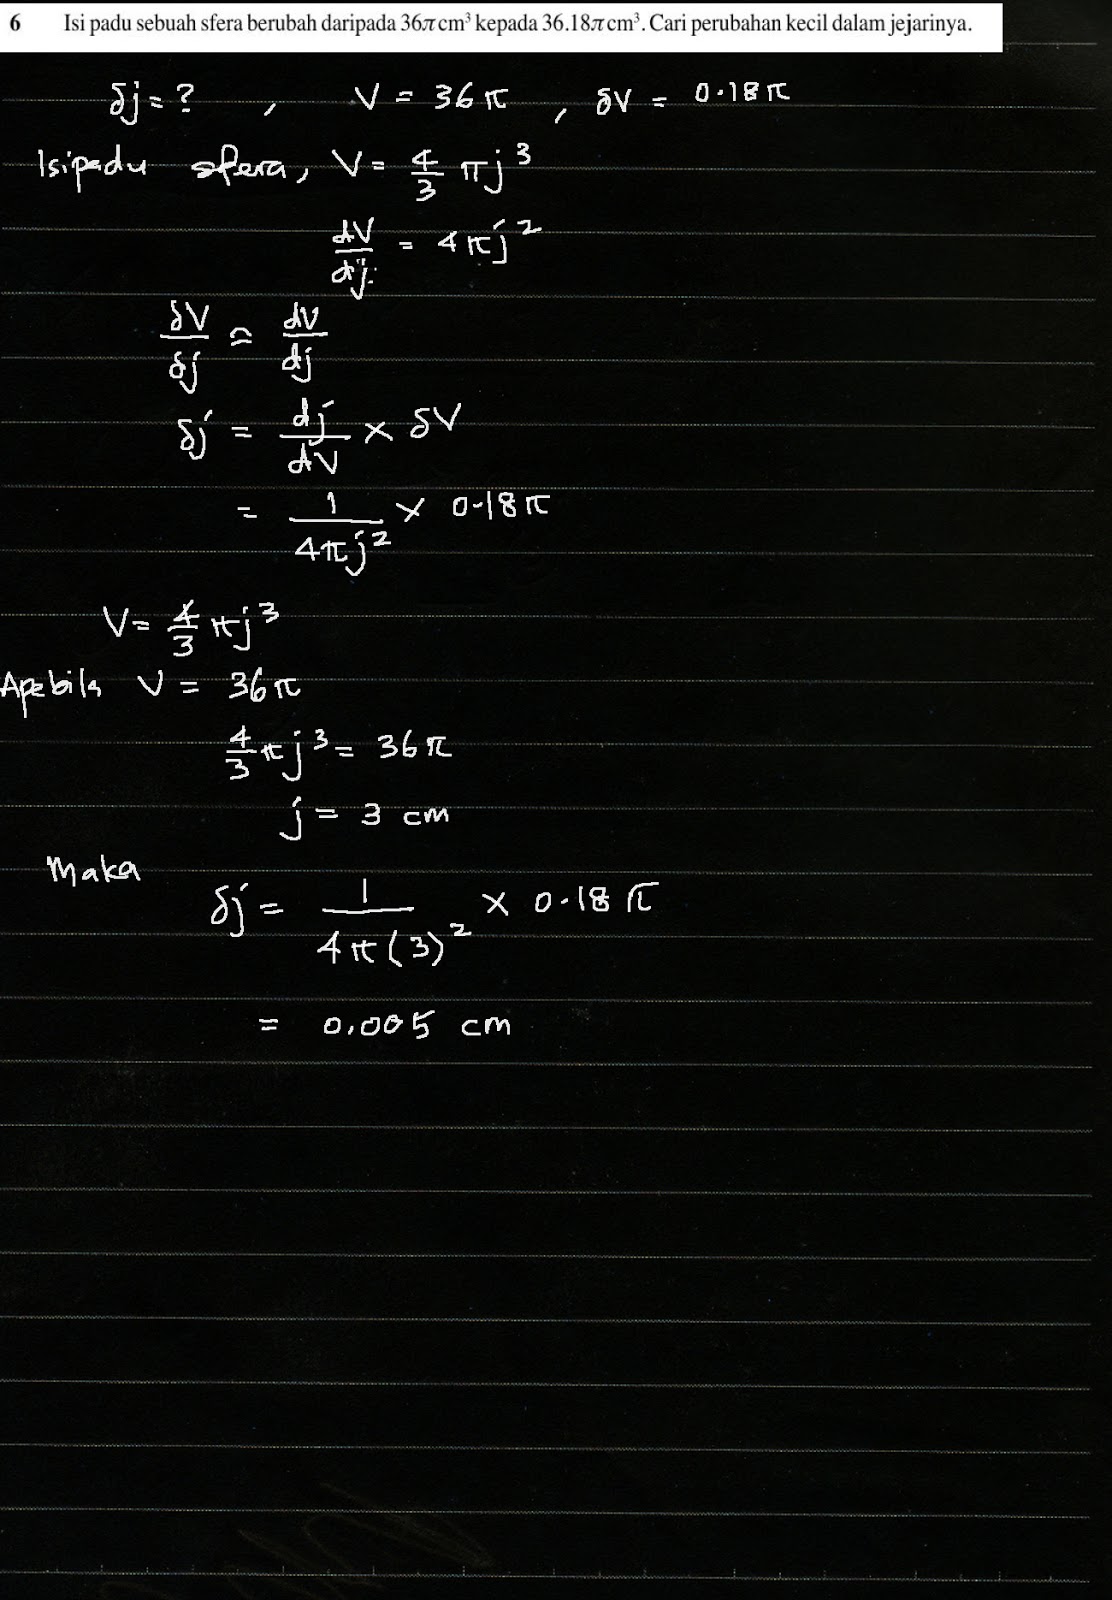 6 Isi padu sebuah sfera berubah daripada 36π cm³ kepada 36.18π cm³. Cari perubahan kecil dalam jejarinya.
δj = ? , V = 36π , δV = 0.18π
Isipadu sfera, V = 4/3 πj³
dV/dj = 4πj²
δV/δj ≈ dV/dj
δj = dj/dV × δV
= 1/4πj² × 0.18π
V = 4/3 πj³
Apabila V = 36π
4/3 πj³ = 36π
j = 3 cm
Maka
δj = 1/4π(3)² × 0.18π
= 0.005 cm